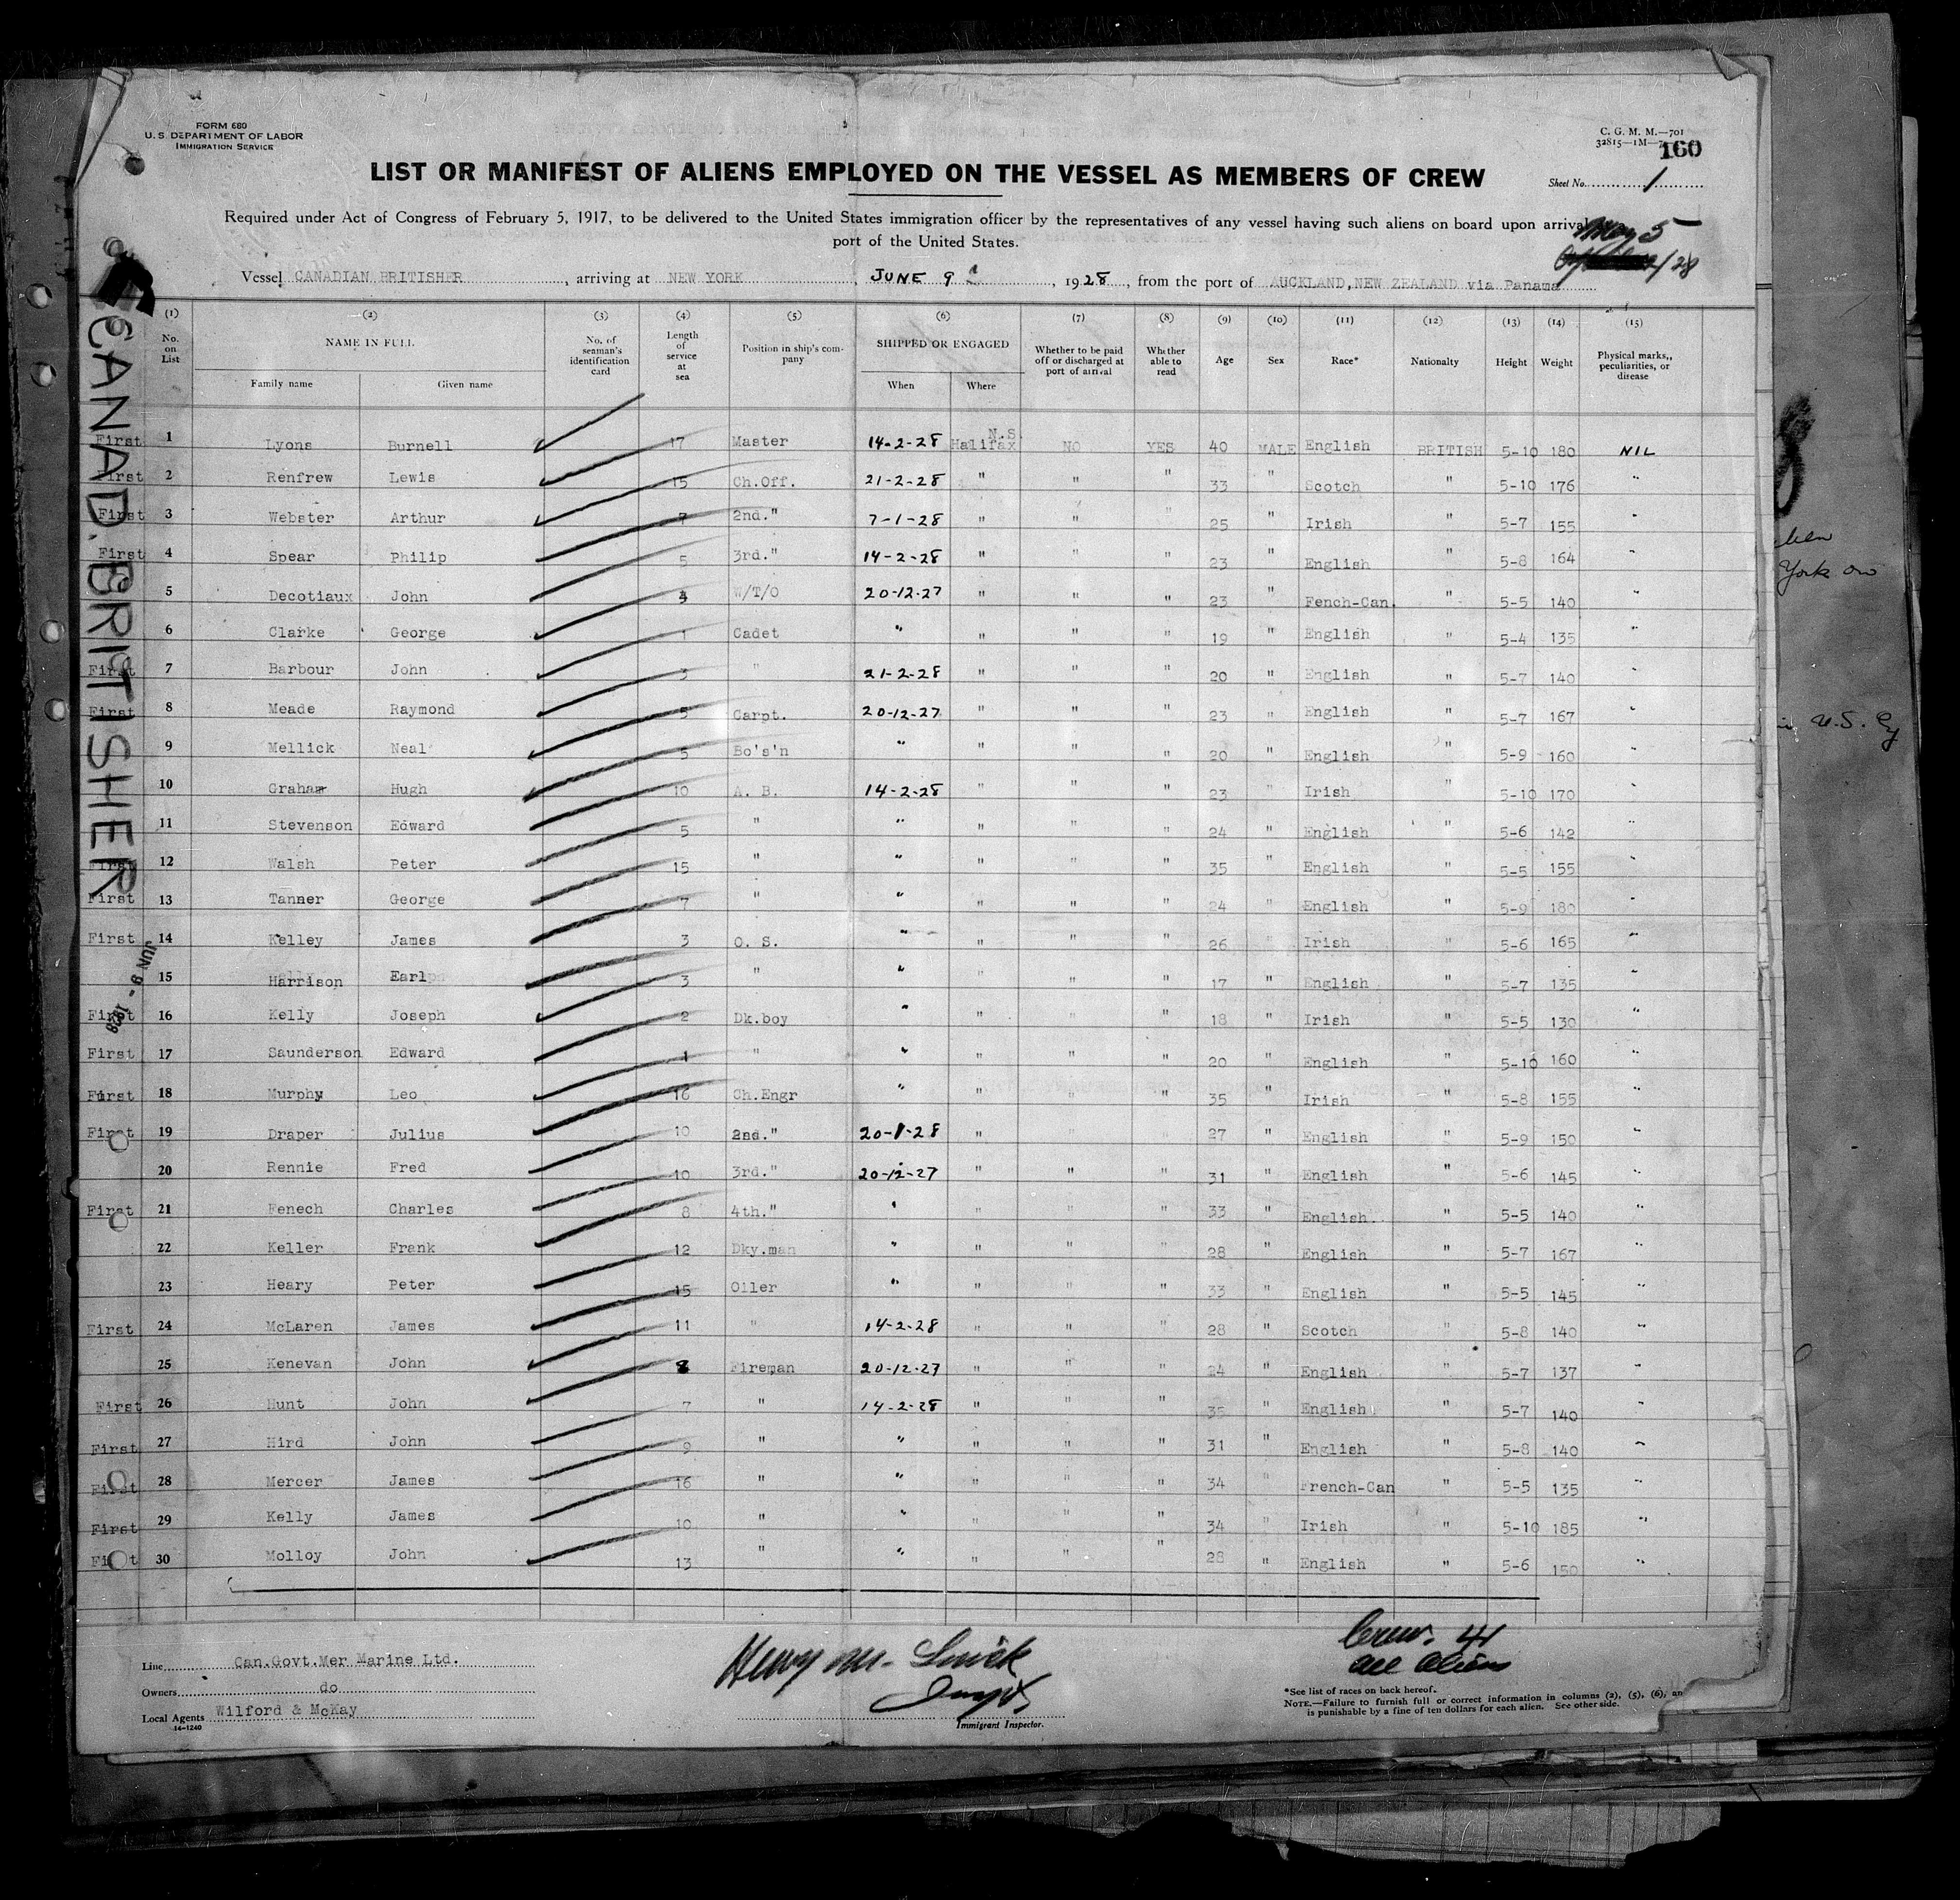 FORM 680
U. S. DEPARTMENT OF LABOR
IMMIGRATION SERVICE
C. G. M. M.—701
160
LIST OR MANIFEST OF ALIENS EMPLOYED ON THE VESSEL AS MEMBERS OF CREW
Sheet No. 1
Required under Act of Congress of February 5, 1917, to be delivered to the United States immigration officer by the representatives of any vessel having such aliens on board upon arrival
port of the United States.
May 5
/28
Vessel CANADIAN BRITISHER, arriving at NEW YORK, JUNE 9, 1928, from the port of AUCKLAND, NEW ZEALAND via Panama
CANAD. BRITISHER
JUN 9 - 1928
(1) (2) (3) (4) (5) (6) (7) (8) (9) (10) (11) (12) (13) (14) (15)
No. on List NAME IN FULL Family name Given name No. of seaman's identification card Length of service at sea Position in ship's company SHIPPED OR ENGAGED When Where Whether to be paid off or discharged at port of arrival Whether able to read Age Sex Race* Nationalty Height Weight Physical marks,, peculiarities, or disease
First 1 Lyons Burnell 17 Master 14-2-28 Halifax N.S. NO YES 40 MALE English BRITISH 5-10 180 NIL
First 2 Renfrew Lewis 15 Ch.Off. 21-2-28 " " " 33 " Scotch " 5-10 176 "
First 3 Webster Arthur 7 2nd." 7-1-28 " " " 25 " Irish " 5-7 155 "
First 4 Spear Philip 5 3rd." 14-2-28 " " " 23 " English " 5-8 164 "
5 Decotiaux John W/T/O 20-12-27 " " " 23 " Fench-Can. " 5-5 140 "
6 Clarke George 1 Cadet " " " " 19 " English " 5-4 135 "
First 7 Barbour John 3 " 21-2-28 " " " 20 " English " 5-7 140 "
First 8 Meade Raymond 5 Carpt. 20-12-27 " " " 23 " English " 5-7 167 "
9 Mellick Neal 5 Bo's'n " " " " 20 " English " 5-9 160 "
10 Graham Hugh 10 A. B. 14-2-28 " " " 23 " Irish " 5-10 170 "
11 Stevenson Edward 5 " " " " " 24 " English " 5-6 142 "
First 12 Walsh Peter 15 " " " " " 35 " English " 5-5 155 "
First 13 Tanner George 7 " " " " " 24 " English " 5-9 180 "
First 14 Kelley James 3 O. S. " " " " 26 " Irish " 5-6 165 "
15 Harrison Earl 3 " " " " " 17 " English " 5-7 135 "
First 16 Kelly Joseph 2 Dk.boy " " " " 18 " Irish " 5-5 130 "
First 17 Saunderson Edward 1 " " " " " 20 " English " 5-10 160 "
First 18 Murphy Leo 16 Ch.Engr " " " " 35 " Irish " 5-8 155 "
First 19 Draper Julius 10 2nd." 20-1-28 " " " 27 " English " 5-9 150 "
20 Rennie Fred 10 3rd." 20-12-27 " " " 31 " English " 5-6 145 "
First 21 Fenech Charles 8 4th." " " " " 33 " English. " 5-5 140 "
22 Keller Frank 12 Dky.man " " " " 28 " English " 5-7 167 "
23 Heary Peter 15 Oiler " " " " 33 " English " 5-5 145 "
First 24 McLaren James 11 " 14-2-28 " " " 28 " Scotch " 5-8 140 "
25 Kenevan John Fireman 20-12-27 " " " 24 " English " 5-7 137 "
First 26 Hunt John 7 " 14-2-28 " " " 35 " English " 5-7 140 "
First 27 Hird John 9 " " " " " 31 " English " 5-8 140 "
First 28 Mercer James 16 " " " " " 34 " French-Can " 5-5 135 "
First 29 Kelly James 10 " " " " " 34 " Irish " 5-10 185 "
First 30 Molloy John 13 " " " " " 28 " English " 5-6 150 "
Line Can.Govt.Mer Marine Ltd.
Owners do
Local Agents Wilford & McKay
14-1240
Henry M.
Immigrant Inspector.
Crew. 41
all aliens
*See list of races on back hereof.
NOTE.—Failure to furnish full or correct information in columns (2), (5), (6), an
is punishable by a fine of ten dollars for each alien. See other side.
York on
U.S.